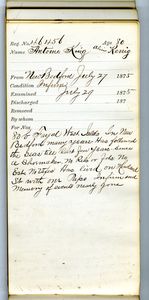 Reg. No. 46456 Age 80
Name, Antone King al Konig
From New Bedford July 27 1875
Condition Infirm
Examined July 29 1875
Discharged 187
Removed
By whom
For No.
80 C Frugal West Indies In New
Bedford many years Has followed
the Seas till last few years since
a Shoemaker No Rels or Fds No
Has lived on
St with our Infirm and
Memory of events nearly gone